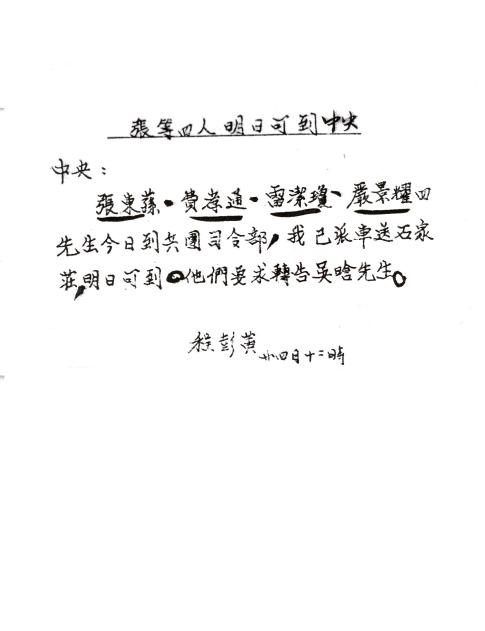 張等四人明日可到中央
中央：
張東蓀・費孝通・雷潔瓊、嚴景耀四
先生今日到兵團司令部，我已派車送石家
莊，明日可到。他們要求轉告吳晗先生。
程彭黃 廿四日十二時